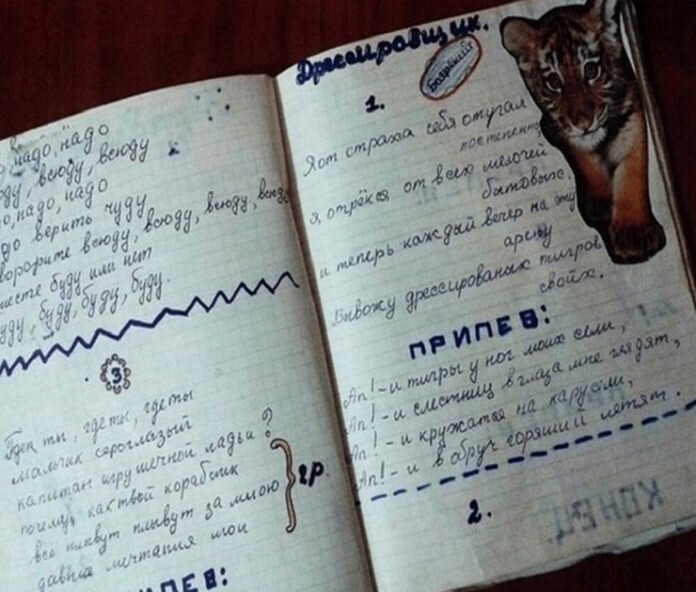 надо, надо
всюду, всюду
надо, надо
верить чуду
всюду, всюду, всюду, всюду
месте буду или нет
буду, буду, буду.
3
Где ты, где ты, где ты
мальчик сероглазый
капитан игрушечной ладьи?
почему, как твой кораблик
все плывут плывут за мною
давние мечтания мои
2р.
ПРИПЕВ:
Дрессировщик.
Боярский
1.
Я от страха себя отучал
постепенно
я отрёкся от всех мелочей
бытовых,
и теперь каждый вечер на эту
арену
Вывожу дрессированых тигров
своих.
ПРИПЕВ:
Ап! - и тигры у ног моих сели,
Ап! - и с лестниц в глаза мне глядят,
Ап! - и кружатся на карусели,
Ап! - и в обруч горящий летят.
2.
КОНЕЦ